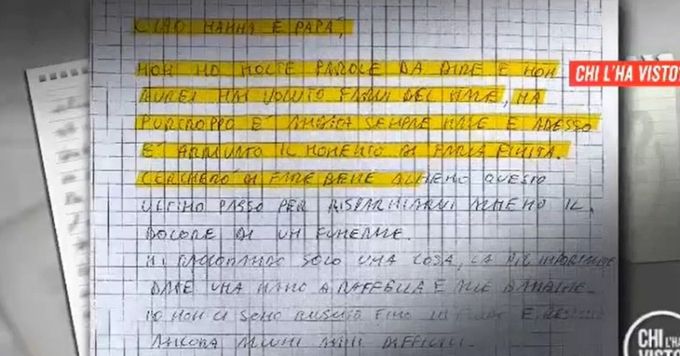 CIAO MAMMA E PAPA',
NON HO MOLTE PAROLE DA DIRE E NON
AVREI MAI VOLUTO FARVI DEL MALE, MA
PURTROPPO E' ANDATA SEMPRE MALE E ADESSO
E' ARRIVATO IL MOMENTO DI FARLA FINITA.
CERCHERO' DI FARE BENE ALMENO QUESTO
ULTIMO PASSO PER RISPARMIARVI ALMENO IL
DOLORE DI UN FUNERALE.
MI RACCOMANDO SOLO UNA COSA, LA PIÙ IMPORTANTE
DARE UNA MANO A RAFFAELLA E ALLE BAMBINE.
IO NON CI SONO RIUSCITO FINO IN FONDO E
ANCORA ANNI DIFFICILI.
CHI L'HA VISTO?
CHI L'HA
VISTO